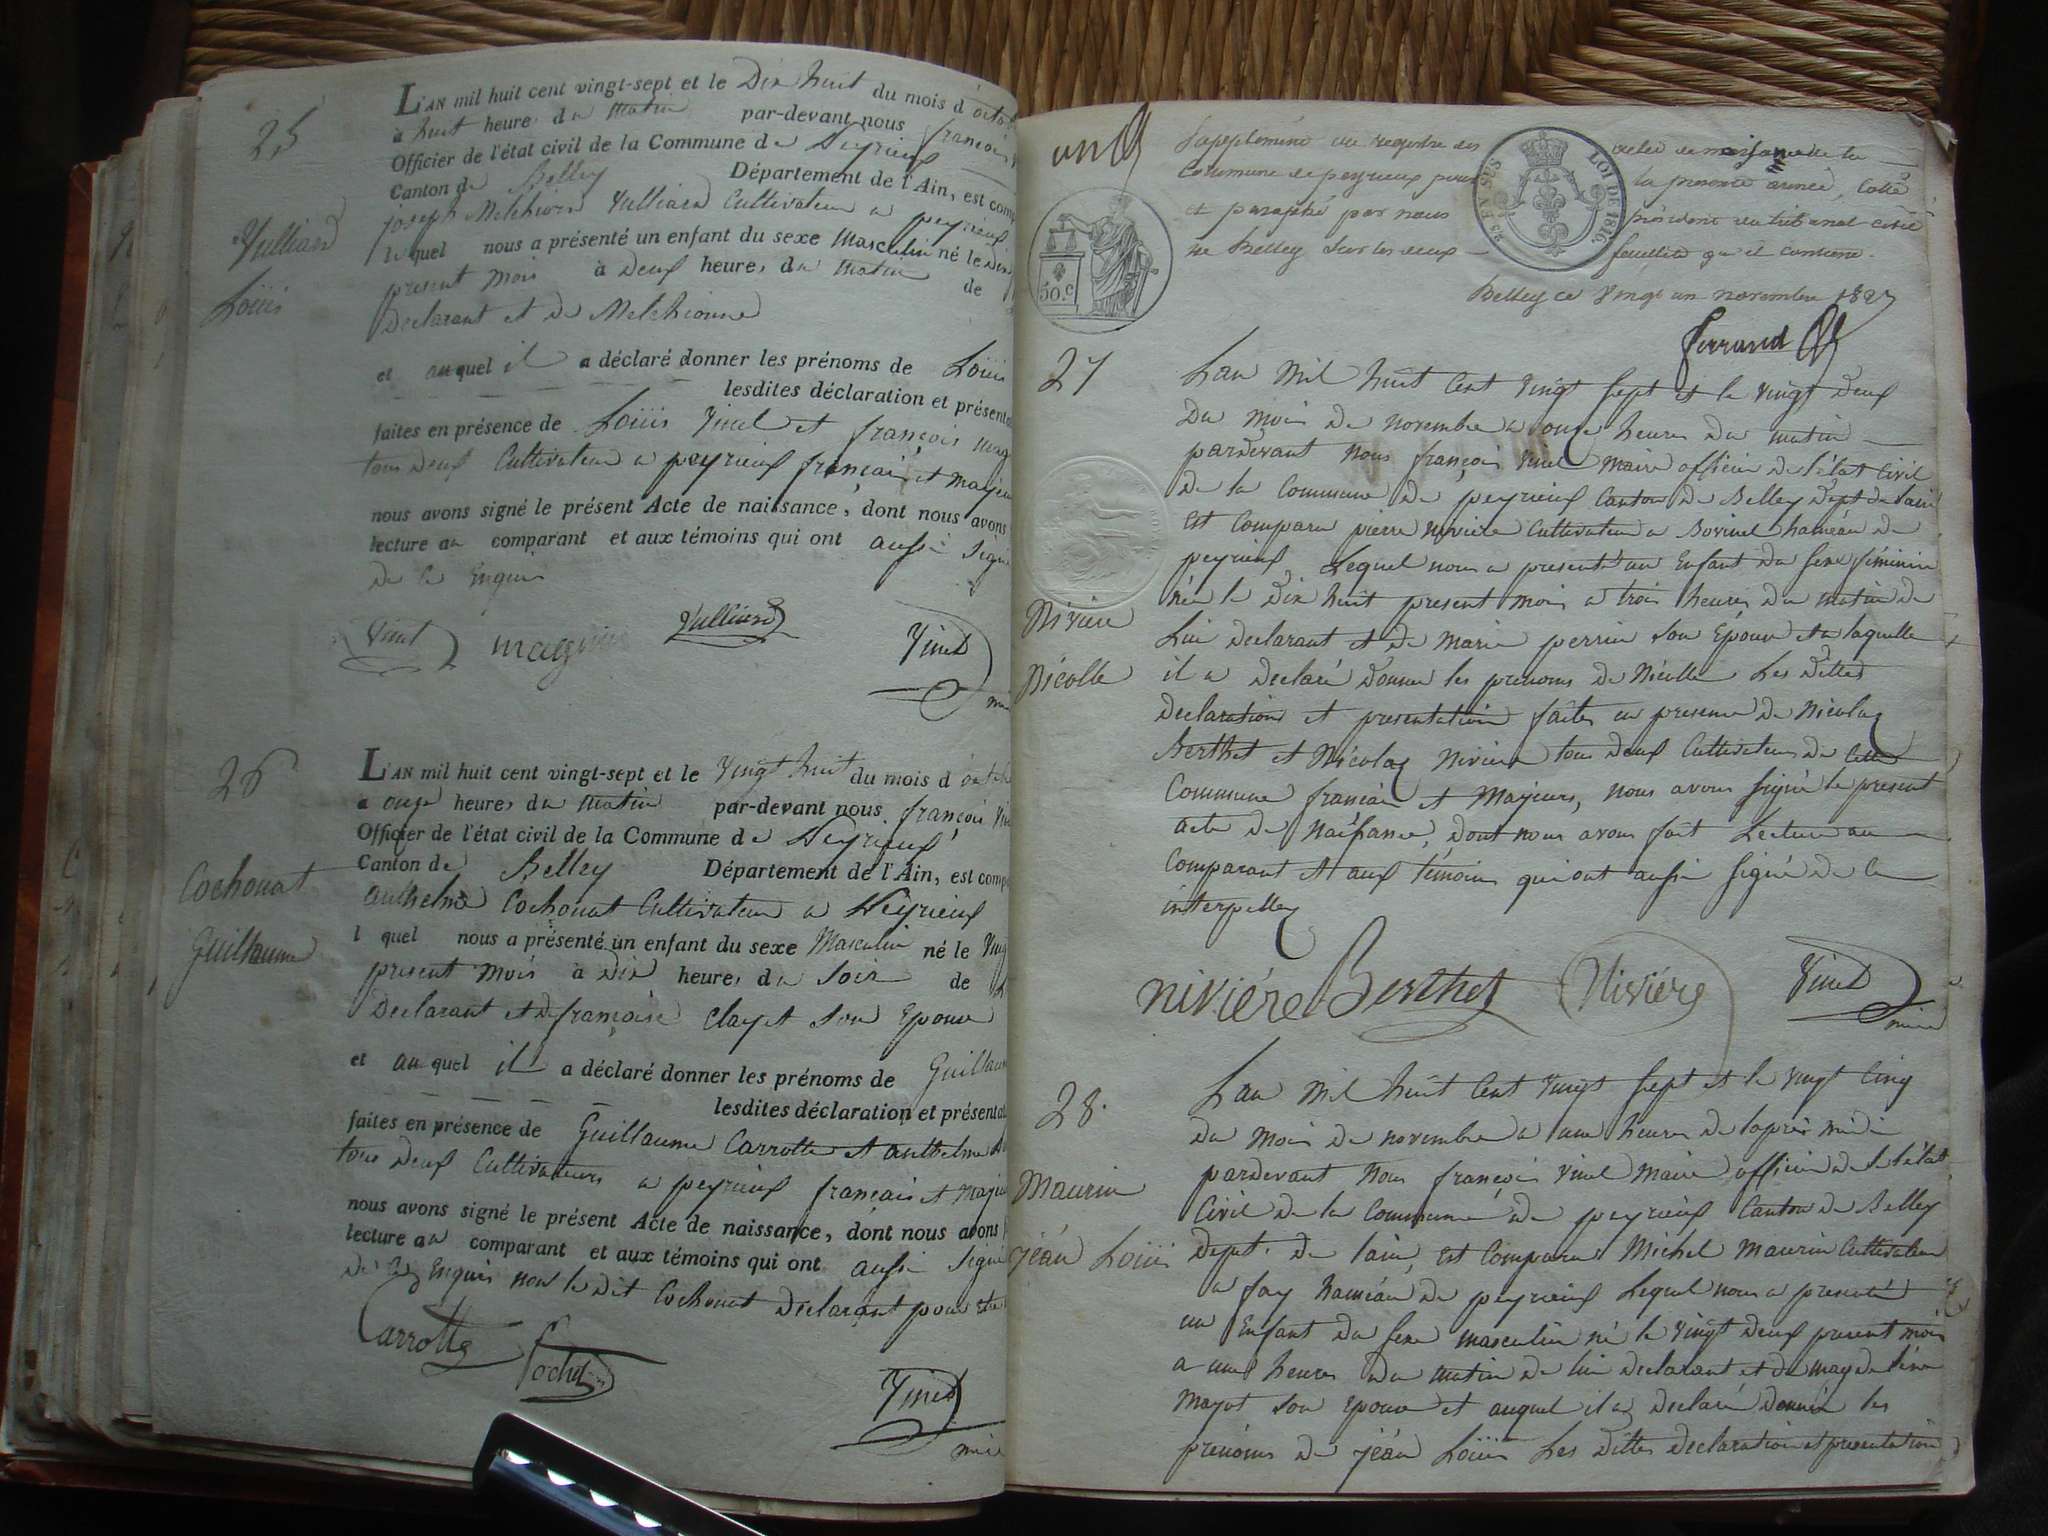 25
Vulliard
Loüis
L'AN mil huit cent vingt-sept et le Dix huit du mois d'octo
à huit heures du matin par-devant nous françois
Officier de l'état civil de la Commune de Peyrieux
Canton de Belley Département de l'Ain, est comp
joseph Melchior Vulliard Cultivateur a peyrieux
lequel nous a présenté un enfant du sexe Masculin né le Dix
present mois à Deux heures du matin de
Declarant et de Melchionne
et auquel il a déclaré donner les prénoms de Loüis
lesdites déclaration et présenta
faites en présence de Loüis Vinet et françois mag
tous Deux Cultivateurs a peyrieux français et majeu
nous avons signé le présent Acte de naissance, dont nous avons
lecture au comparant et aux témoins qui ont aussi signé
De ce Enquis
Vinet magnin Vulliard Vinet
26
Cochonat
Guillaume
L'AN mil huit cent vingt-sept et le Vingt huit du mois d'octob
à onze heures du matin par-devant nous françois Vin
Officier de l'état civil de la Commune de Peyrieux
Canton de Belley Département de l'Ain, est comp
anthelme Cochonat Cultivateur a Peyrieux
lequel nous a présenté un enfant du sexe Masculin né le Ving
present mois à Dix heures du Soir de
Declarant et de françoise Clayet son Epouse
et auquel il a déclaré donner les prénoms de Guillaum
lesdites déclaration et présentat
faites en présence de Guillaume Carrotte et anthelme
tous Deux Cultivateurs a peyrieux français et majeu
nous avons signé le présent Acte de naissance, dont nous avons
lecture au comparant et aux témoins qui ont aussi signé
De ce Enquis non le dit Cochonat Declarant pour
Carrotte Vinet
Supplément au registre des actes de naissance de la
Commune de peyrieux pour la présente année, Cotté
et paraphé par nous président du tribunal civil
de Belley sur les deux feuillets qu'il contient.
Belley ce Vingt un novembre 1827
ferrand
50.C
LOI DE 1816.
27
Nivière
Nicolle
Lan Mil huit Cent Vingt Sept et le Vingt Deux
Du Mois De novembre a onze heures Du matin
pardevant Nous françois Vinet maire officier De l'état Civil
De la Commune De peyrieux Canton De Belley Dept De lain
Est Comparu pierre Nivière Cultivateur a Bovinel haméau De
peyrieux Lequel nous a presenté un Enfant Du Sexe féminin
née le Dix huit present mois a trois heures Du matin De
Lui declarant et De marie perrin Son Epouse et a laquelle
il a Declaré Donner les prenoms De Nicolle Les Dittes
Declarations et presentation faites en presence De Nicolas
Berthet et Nicolas Nivière tous Deux Cultivateurs De Cette
Commune francais et Majeurs, nous avons Signé le present
acte De Naissance, Dont nous avons fait Lecture au
Comparant et aux témoins qui ont aussi Signé De Ce
interpellez
nivière Berthet Nivière Vinet
maire
28.
Maurin
jéan Loüis
Lan Mil huit Cent Vingt Sept et le Vingt Cinq
Du Mois De novembre a une heures De laprès midi
pardevant Nous françois Vinet Maire officier De l'état
Civil De la Commune De peyrieux Canton De Belley
Dept. De lain, Est Comparu Michel Maurin Cultivateur
a fay haméau De peyrieux Lequel nous a presenté
un Enfant Du Sexe masculin né le Vingt Deux present mois
a une heures Du matin De lui Declarant et De magdeleine
Mayot Son Epouse et auquel il a Declaré Donner les
prénoms De jéan Loüis Les Dittes Declaration et presentation